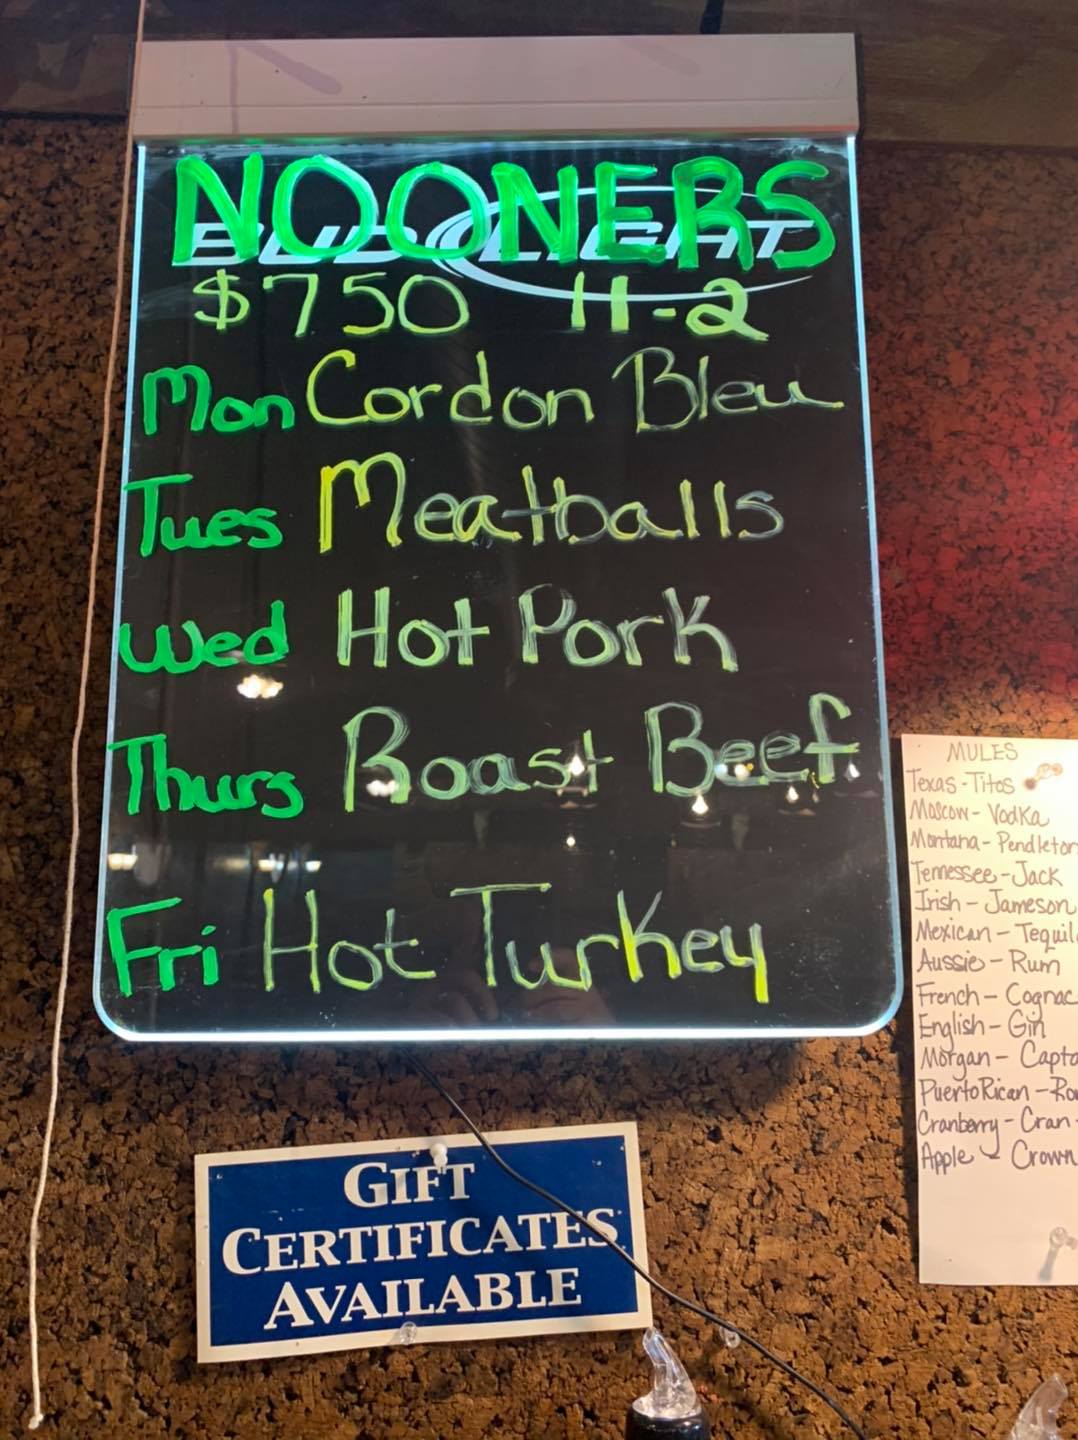 NOONERS
BUD LIGHT
$750 11-2
Mon Cordon Bleu
Tues Meatballs
Wed Hot Pork
Thurs Roast Beef
Fri Hot Turkey
GIFT
CERTIFICATES
AVAILABLE
MULES
Texas - Titos
Moscow - Vodka
Montana - Pendleton
Tennessee - Jack
Irish - Jameson
Mexican - Tequil
Aussie - Rum
French - Cognac
English - Gin
Morgan - Capta
Puerto Rican -
Cranberry - Cran
Apple - Crown